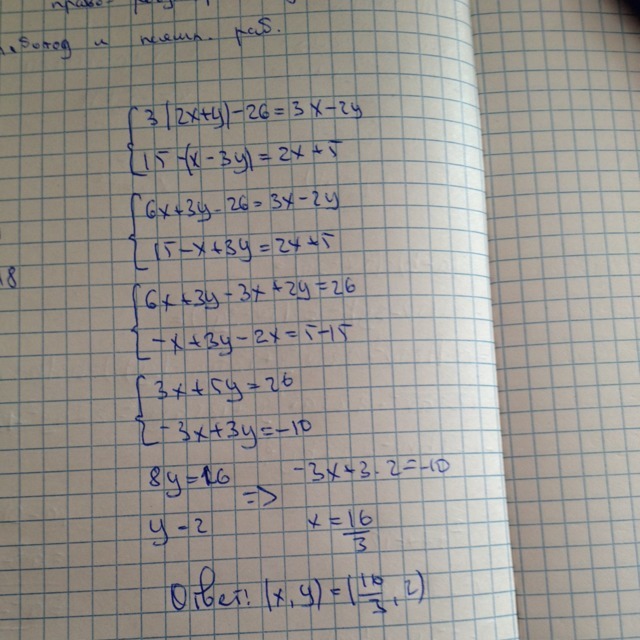 и раб.
3(2x+y)-26=3x-2y
15-(x-3y)=2x+5
6x+3y-26=3x-2y
15-x+3y=2x+5
18
6x+3y-3x+2y=26
-x+3y-2x=5-15
3x+5y=26
-3x+3y=-10
8y=16 => -3x+3·2=-10
y=2 x=16/3
Ответ: (x,y)=(16/3,2)